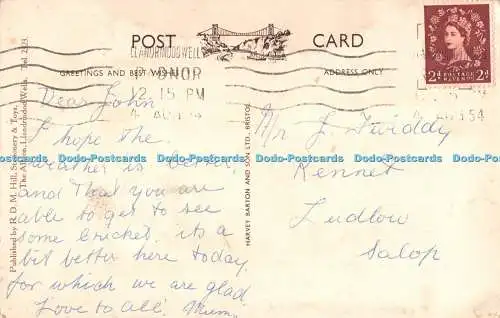 POST CARD
LLANDRINDOD WELLS
GREETINGS AND BEST WISHES
ADDRESS ONLY
RADNOR
12. 15 PM
54
2d POSTAGE REVENUE 2d
Dear John
I hope the
weather is better
and that you are
able to get to see
some Cricket. its a
bit better here today.
for which we are glad.
Love to all. Mum.
Mr J. Twiddy
Kennet
Ludlow
Salop
Published by R. D. M. Hill, Stationery & Toys,
The Albion, Llandrindod Wells. Tel. 2233.
HARVEY BARTON AND SON LTD., BRISTOL
Dodo-Postcards.com Dodo-Postcards.com Dodo-Postcards.com Dodo-Postcards.com Dodo-Postcards.com